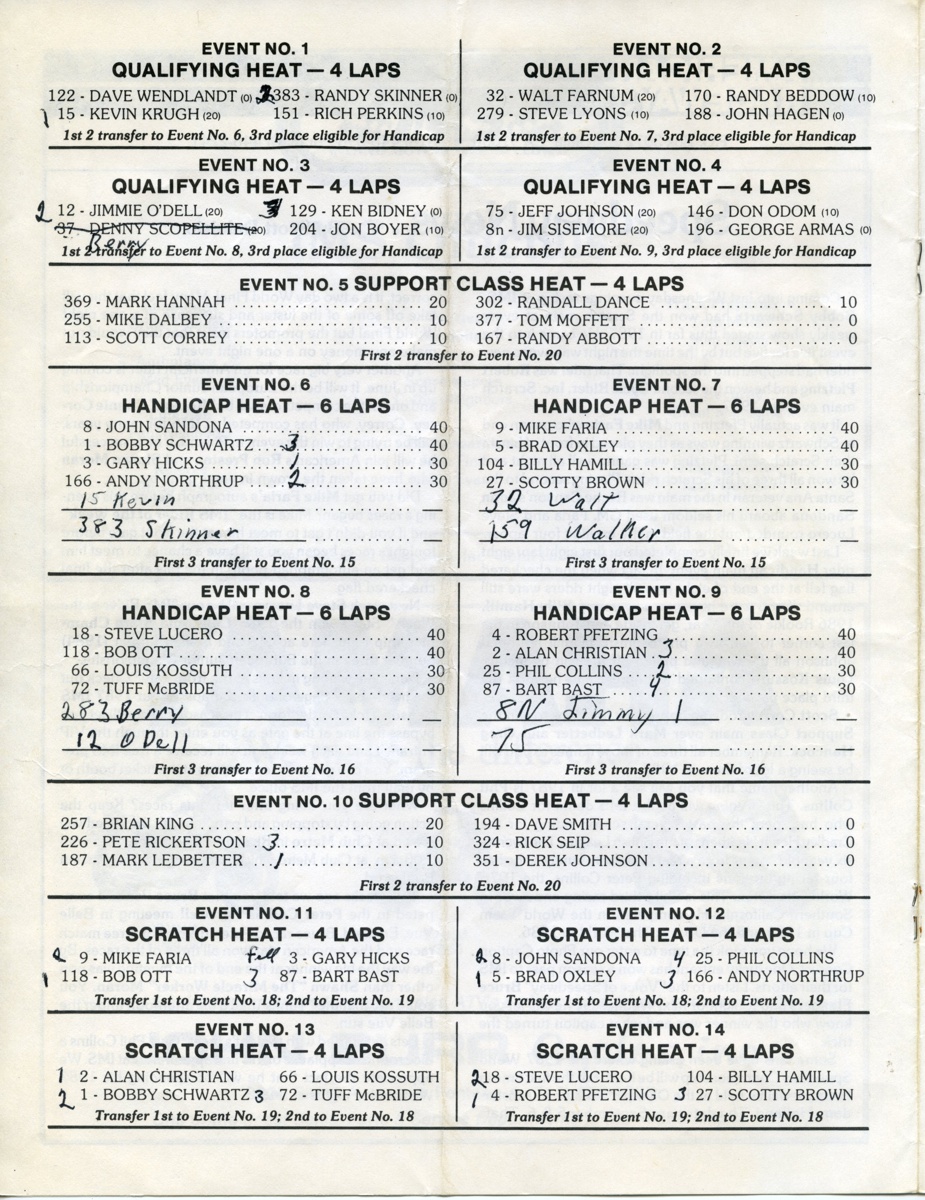 EVENT NO. 1
QUALIFYING HEAT — 4 LAPS
122 - DAVE WENDLANDT (0) 2 383 - RANDY SKINNER (0)
1 15 - KEVIN KRUGH (20) 151 - RICH PERKINS (10)
1st 2 transfer to Event No. 6, 3rd place eligible for Handicap
EVENT NO. 2
QUALIFYING HEAT — 4 LAPS
32 - WALT FARNUM (20) 170 - RANDY BEDDOW (10)
279 - STEVE LYONS (10) 188 - JOHN HAGEN (0)
1st 2 transfer to Event No. 7, 3rd place eligible for Handicap
EVENT NO. 3
QUALIFYING HEAT — 4 LAPS
2 12 - JIMMIE O'DELL (20) 129 - KEN BIDNEY (0)
37 - DENNY SCOPELLITE (20) 204 - JON BOYER (10)
Berry
1st 2 transfer to Event No. 8, 3rd place eligible for Handicap
EVENT NO. 4
QUALIFYING HEAT — 4 LAPS
75 - JEFF JOHNSON (20) 146 - DON ODOM (10)
8n - JIM SISEMORE (20) 196 - GEORGE ARMAS (0)
1st 2 transfer to Event No. 9, 3rd place eligible for Handicap
EVENT NO. 5 SUPPORT CLASS HEAT — 4 LAPS
369 - MARK HANNAH 20 302 - RANDALL DANCE 10
255 - MIKE DALBEY 10 377 - TOM MOFFETT 0
113 - SCOTT CORREY 10 167 - RANDY ABBOTT 0
First 2 transfer to Event No. 20
EVENT NO. 6
HANDICAP HEAT — 6 LAPS
8 - JOHN SANDONA 40
1 - BOBBY SCHWARTZ 3 40
3 - GARY HICKS 1 30
166 - ANDY NORTHRUP 2 30
15 Kevin
383 Skinner
First 3 transfer to Event No. 15
EVENT NO. 7
HANDICAP HEAT — 6 LAPS
9 - MIKE FARIA 40
5 - BRAD OXLEY 40
104 - BILLY HAMILL 30
27 - SCOTTY BROWN 30
32 Walt
159 Walker
First 3 transfer to Event No. 15
EVENT NO. 8
HANDICAP HEAT — 6 LAPS
18 - STEVE LUCERO 40
118 - BOB OTT 40
66 - LOUIS KOSSUTH 30
72 - TUFF McBRIDE 30
283 Berry
12 O Dell
First 3 transfer to Event No. 16
EVENT NO. 9
HANDICAP HEAT — 6 LAPS
4 - ROBERT PFETZING 40
2 - ALAN CHRISTIAN 3 40
25 - PHIL COLLINS 2 30
87 - BART BAST 4 30
8N Jimmy 1
75
First 3 transfer to Event No. 16
EVENT NO. 10 SUPPORT CLASS HEAT — 4 LAPS
257 - BRIAN KING 20 194 - DAVE SMITH 0
226 - PETE RICKERTSON 3 10 324 - RICK SEIP 0
187 - MARK LEDBETTER 1 10 351 - DEREK JOHNSON 0
First 2 transfer to Event No. 20
EVENT NO. 11
SCRATCH HEAT — 4 LAPS
2 9 - MIKE FARIA fell 3 - GARY HICKS
1 118 - BOB OTT 87 - BART BAST
Transfer 1st to Event No. 18; 2nd to Event No. 19
EVENT NO. 12
SCRATCH HEAT — 4 LAPS
2 8 - JOHN SANDONA 4 25 - PHIL COLLINS
1 5 - BRAD OXLEY 3 166 - ANDY NORTHRUP
Transfer 1st to Event No. 18; 2nd to Event No. 19
EVENT NO. 13
SCRATCH HEAT — 4 LAPS
1 2 - ALAN CHRISTIAN 66 - LOUIS KOSSUTH
2 1 - BOBBY SCHWARTZ 3 72 - TUFF McBRIDE
Transfer 1st to Event No. 19; 2nd to Event No. 18
EVENT NO. 14
SCRATCH HEAT — 4 LAPS
2 18 - STEVE LUCERO 104 - BILLY HAMILL
1 4 - ROBERT PFETZING 3 27 - SCOTTY BROWN
Transfer 1st to Event No. 19; 2nd to Event No. 18